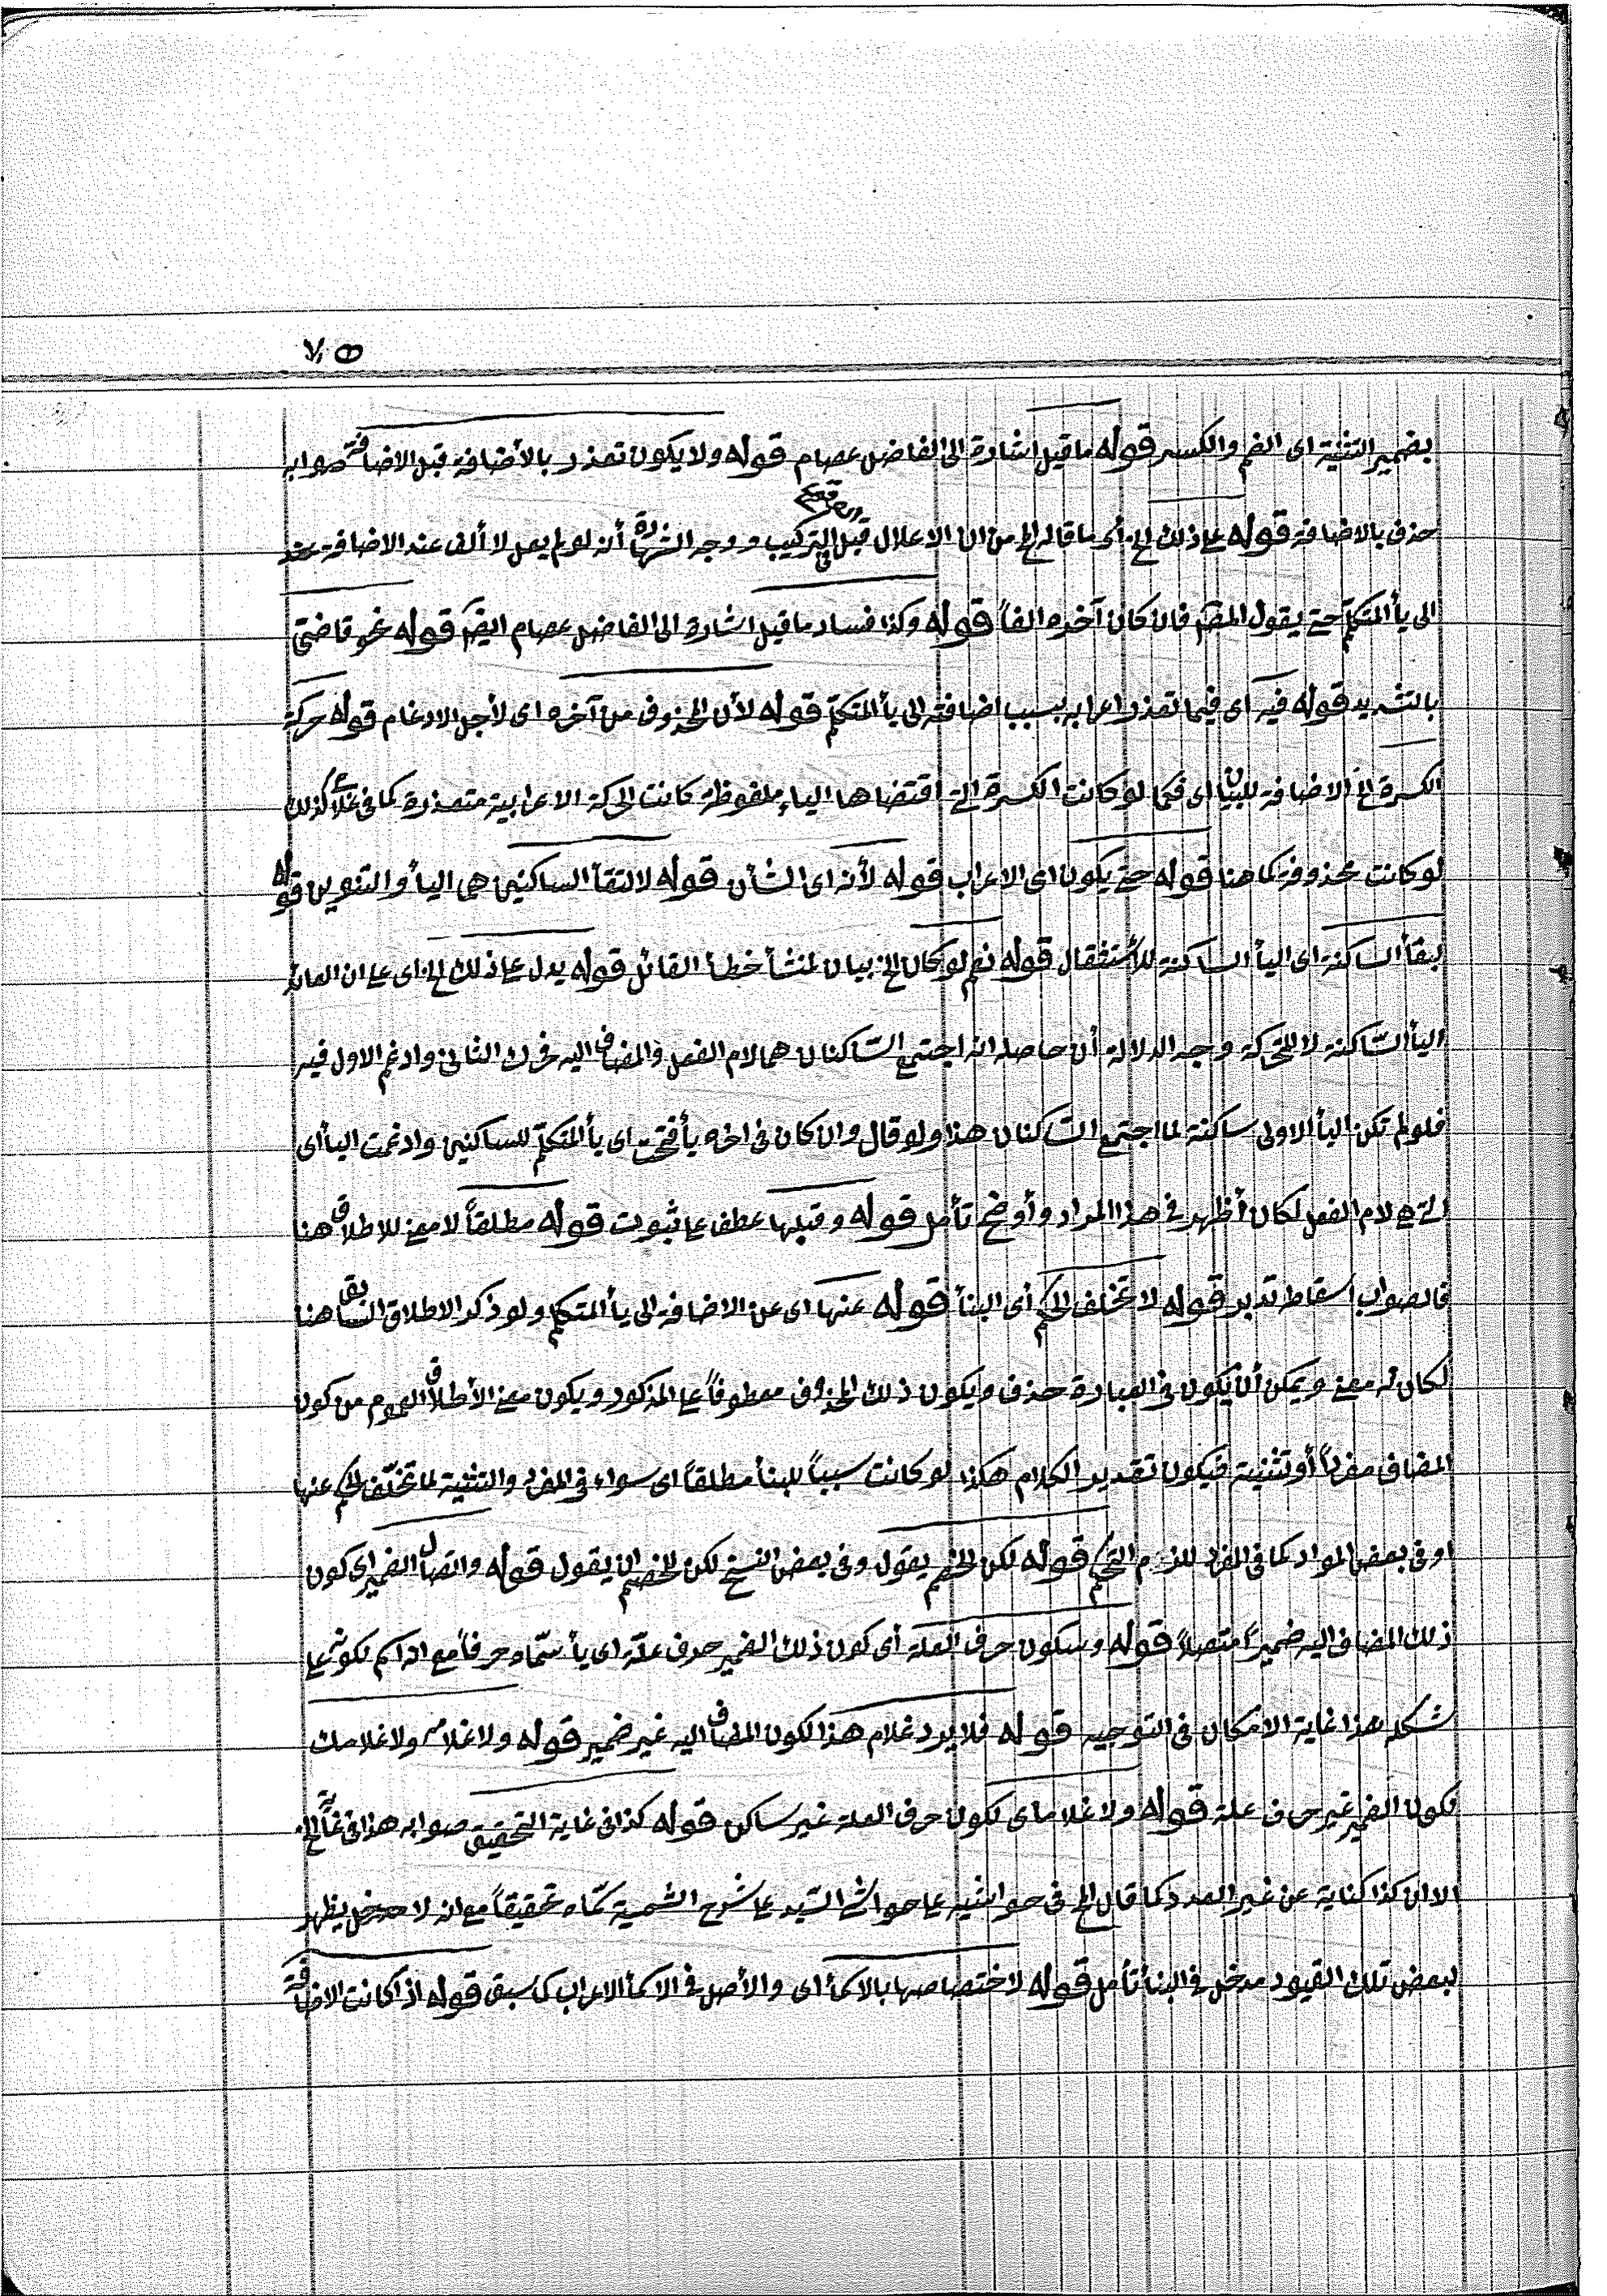 ٧٥
بضمير التثنية اى الضم والكسر قوله ما قيل اشارة الى الفاضل عصام قوله ولا يكون تعذر بالأضافة قبل الاضافة صوابه
حذف بالاضافة قوله على ذلك الخ أى ما قاله الخ من ان الاعلال قبل التركيب ووجه الشهادة أنه لو لم يعل لا ألف عند الاضافة
الى يأ المتكلم حتى يقول المصنف فان كان آخره الفاً قوله وكذا فساد ما قيل اشارة الى الفاضل عصام ايضا قوله نحو قاضيّ
بالتشديد قوله فيه اى فيما تعذر اعرابه بسبب اضافته الى يأ المتكلم قوله لأن المحذوف من آخره اى لأجل الادغام قوله حركة
الكسرة الخ الاضافة للبيان اى فكما لو كانت الكسرة التى اقتضاها الياء ملفوظة كانت الحركة الاعرابية متعذرة كما فى غلامى كذلك
لو كانت محذوفة كما هنا قوله حتى يكون اى الاعراب قوله لأنه اى الشأن قوله لالتقأ الساكنين هى اليأ والتنوين قوله
لبقأ الساكنة اى اليأ الساكنة للأستثقال قوله نعم لو كان الخ بيان لمنشأ خطأ القائل قوله يدل على ذلك الخ اى على ان العائد
اليأ السّاكنة لا المتحركة وجه الدلالة أن حاصله انه اجتمع السّاكنان هما لام الفعل والمضاف اليه فحرك الثانى وادغم الاول فيه
فلو لم تكن اليأ الاولى ساكنة لما اجتمع السّاكنان هذا ولو قال وان كان فى اخره يأ فتحت اى يأ المتكلّم للساكنين وادغمت اليأ اى
التى هى لام الفعل لكان أظهر فى هذا المراد وأوضح تأمل قوله وقبلها عطف على ثبوت قوله مطلقاً لا معنى للاطلاق هنا
فالصواب اسقاطه تدبر قوله لا تخلف الحكم أى البنأ قوله عنها اى عن الاضافة الى يأ المتكلم ولو ذكر الاطلاق السابق هنا
لكان له معنى ويمكن أن يكون فى العبارة حذف ويكون ذلك المحذوف معطوفاً على المذكور ويكون معنى الأطلاق العموم من كون
المضاف مفرداً أو تثنية فيكون تقدير الكلام هكذا لو كانت سبباً للبنأ مطلقاً اى سواء فى المفرد والتثنية لما تخلّف الحكم عنها
او فى بعض المواد كما فى المفرد للزم التحكم قوله لكن الخصم يقول وفى بعض النسخ لكن للخصم ان يقول قوله واتصال الضمير اى كون
ذلك المضاف اليه ضميراً متصلاً قوله وسكون حرف العلة أى كون ذلك الضمير حرف علّة اى يأ سمّاه حرفاً مع انه اسم لكونه على
شكله هذا غاية الامكان فى التوجيه قوله فلا يرد غلام هذا لكون المضاف اليه غير ضمير قوله ولا غلامه ولا غلامك
لكون الضمير غير حرف علة قوله ولا غلاماى لكون حرف العلة غير ساكن قوله كذا فى غاية التحقيق صوابه هذا فى غاية الخ
الا ان كذا كناية عن غير العدد كما قال الخ فى حواشيه على حواشى السّيد على شرح الشمسية سمّاه تحقيقاً مع انه لا مدخل يظهر
لبعض تلك القيود مدخل فى البنأ تأمل قوله لاختصاصها بالاسمأ اى والأصل فى الاسمأ الاعراب كما سبق قوله اذا كانت الاضافة